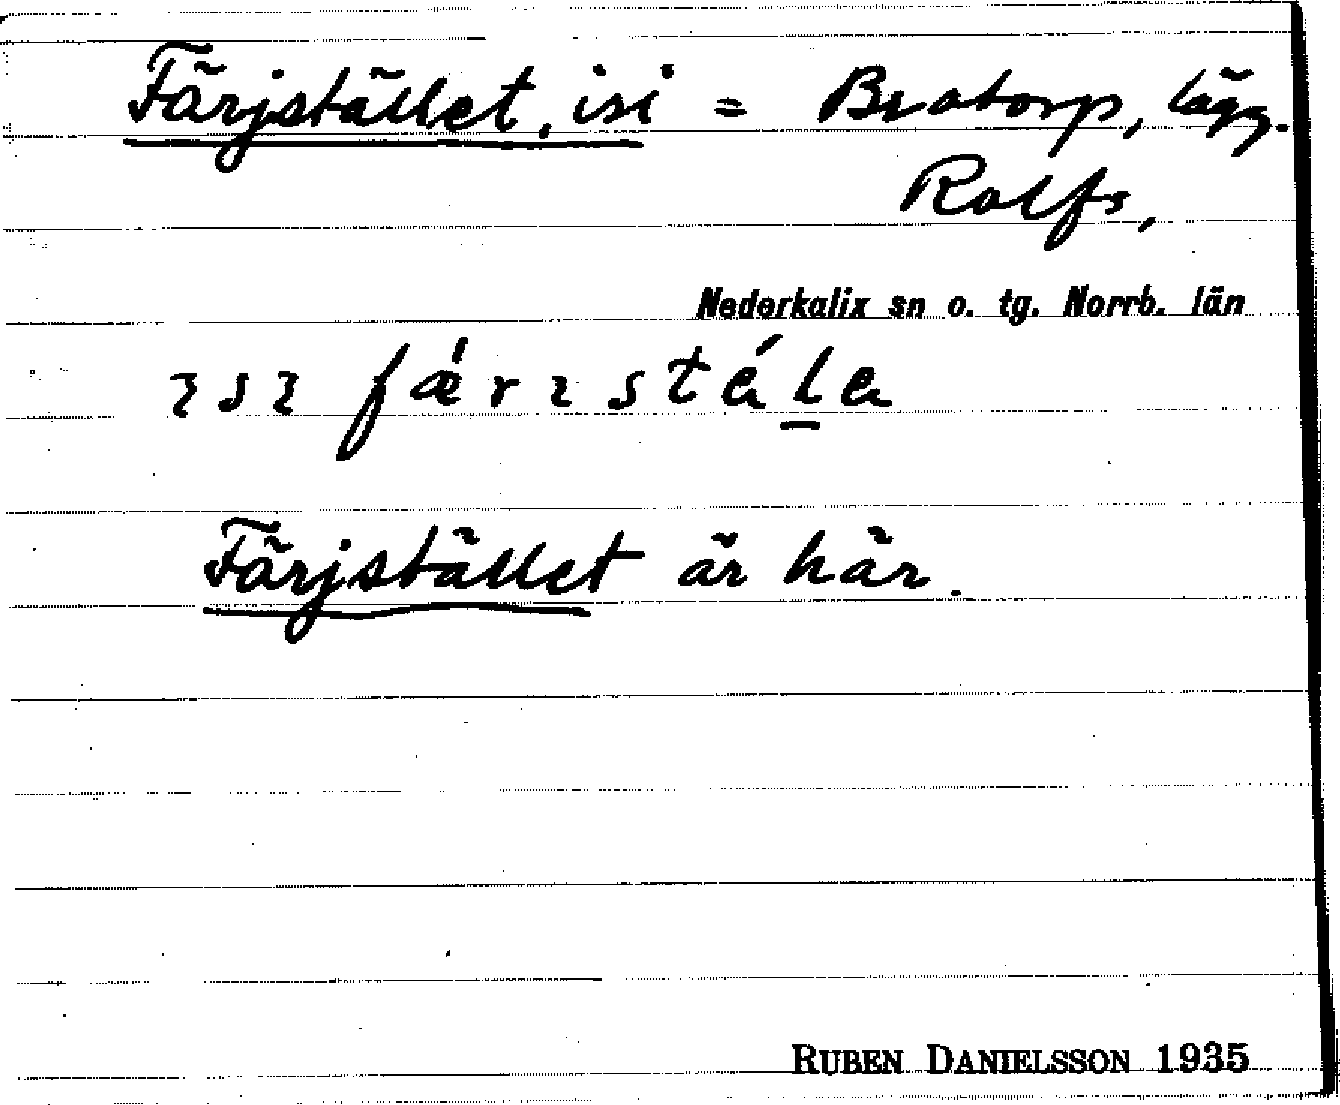 Färjstället, isi = Bratorp, lägg.
Rolfs,
Nederkalix sn o. tg. Norrb. län
ɪsɪ fǽrɪstéle
Färjstället är här.
RUBEN DANIELSSON 1935